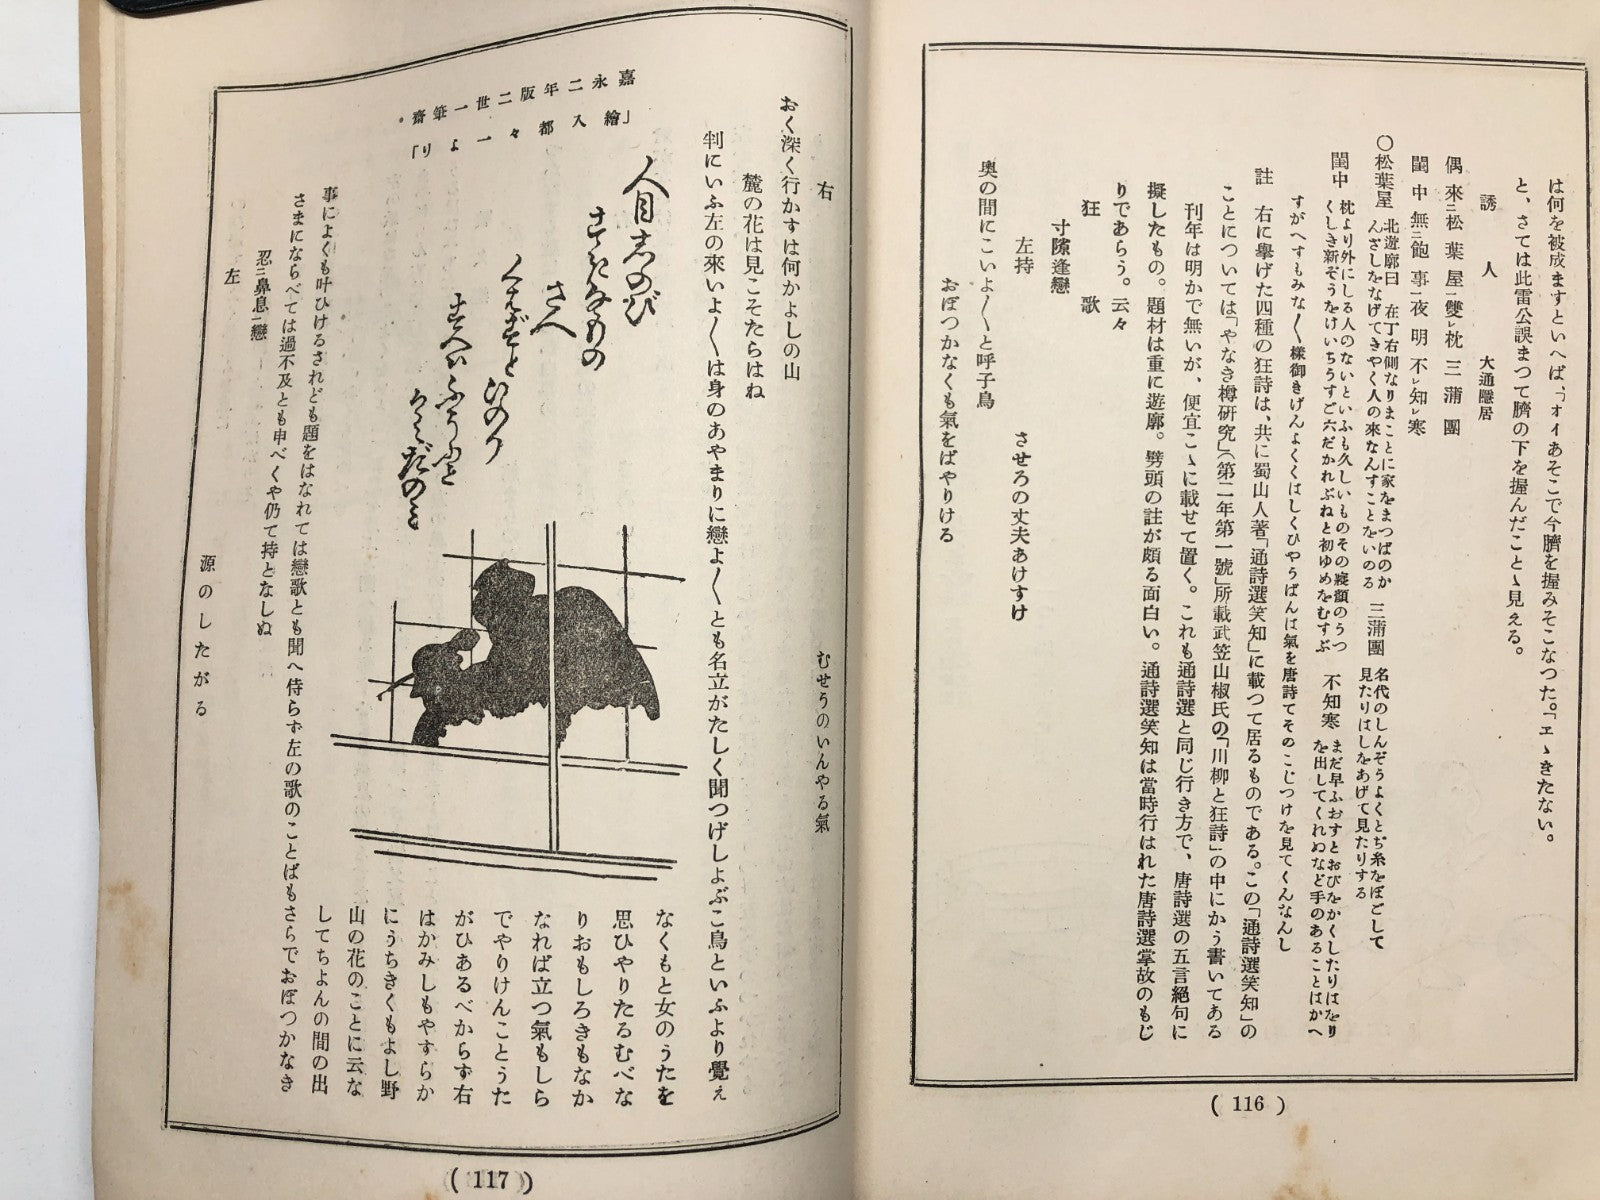 は何を被成ますといへば、「オイあそこで今臍を握みそこなつた。「エヽきたない。
と、さては此雷公誤まつて臍の下を握んだことヽ見える。
誘人　大通隱居
偶來ニ松葉屋一雙レ枕三蒲團
閨中無ニ飽事一夜明不レ知レ寒
〇松葉屋　北遊廓曰　在丁右側なりまことに家をまつばのか
んざしをなげてきやく人の來なんすことをいのる
三蒲團　名代のしんぞうよくとぢ糸をほごして
見たりはしをあげて見たりする
閨中　枕より外にしる人のないといふも久しいものその寢顏のうつ
くしき新ぞうをけいちうすご六だかれぶねと初ゆめをむすぶ
不知寒　まだ早ふおすとおびをかくしたりはをり
を出してくれぬなど手のあることはかへ
すがへすもみな〱樣御きげんよくくはしくひやうばんは氣を唐詩てそのこじつけを見てくんなんし
註　右に擧げた四種の狂詩は、共に蜀山人著「通詩選笑知」に載つて居るものである。この「通詩選笑知」の
ことについては「やなき樽研究」（第二年第一號」所載武笠山椒氏の「川柳と狂詩」の中にかう書いてある
刊年は明かで無いが、便宜こヽに載せて置く。これも通詩選と同じ行き方で、唐詩選の五言絕句に
擬したもの。題材は重に遊廓。劈頭の註が頗る面白い。通詩選笑知は當時行はれた唐詩選掌故のもじ
りであらう。云々
狂歌
寸隙逢戀
左持　させろの丈夫あけすけ
奧の間にこいよ〱と呼子鳥
おぼつかなくも氣をばやりける
( 116 )
右　むせうのいんやる氣
おく深く行かすは何かよしの山
麓の花は見こそたらはね
判にいふ左の來いよ〱は身のあやまりに戀よ〱とも名立がたしく聞つげしよぶこ鳥といふより覺え
なくもと女のうたを
思ひやりたるむべな
りおもしろきもなか
なれば立つ氣もしら
でやりけんことうた
がひあるべからず右
はかみしもやすらか
にうちきくもよし野
山の花のことに云な
してちよんの間の出
嘉永二年版二世一筆齋
「繪入都々一より」
人目しのび
さへ
くはず
事によくも叶ひけるされども題をはなれては戀歌とも聞へ侍らず左の歌のことばもさらでおぼつかなき
さまにならべては過不及とも申べくや仍て持となしぬ
忍ニ鼻息一戀
左　源のしたがる
( 117 )